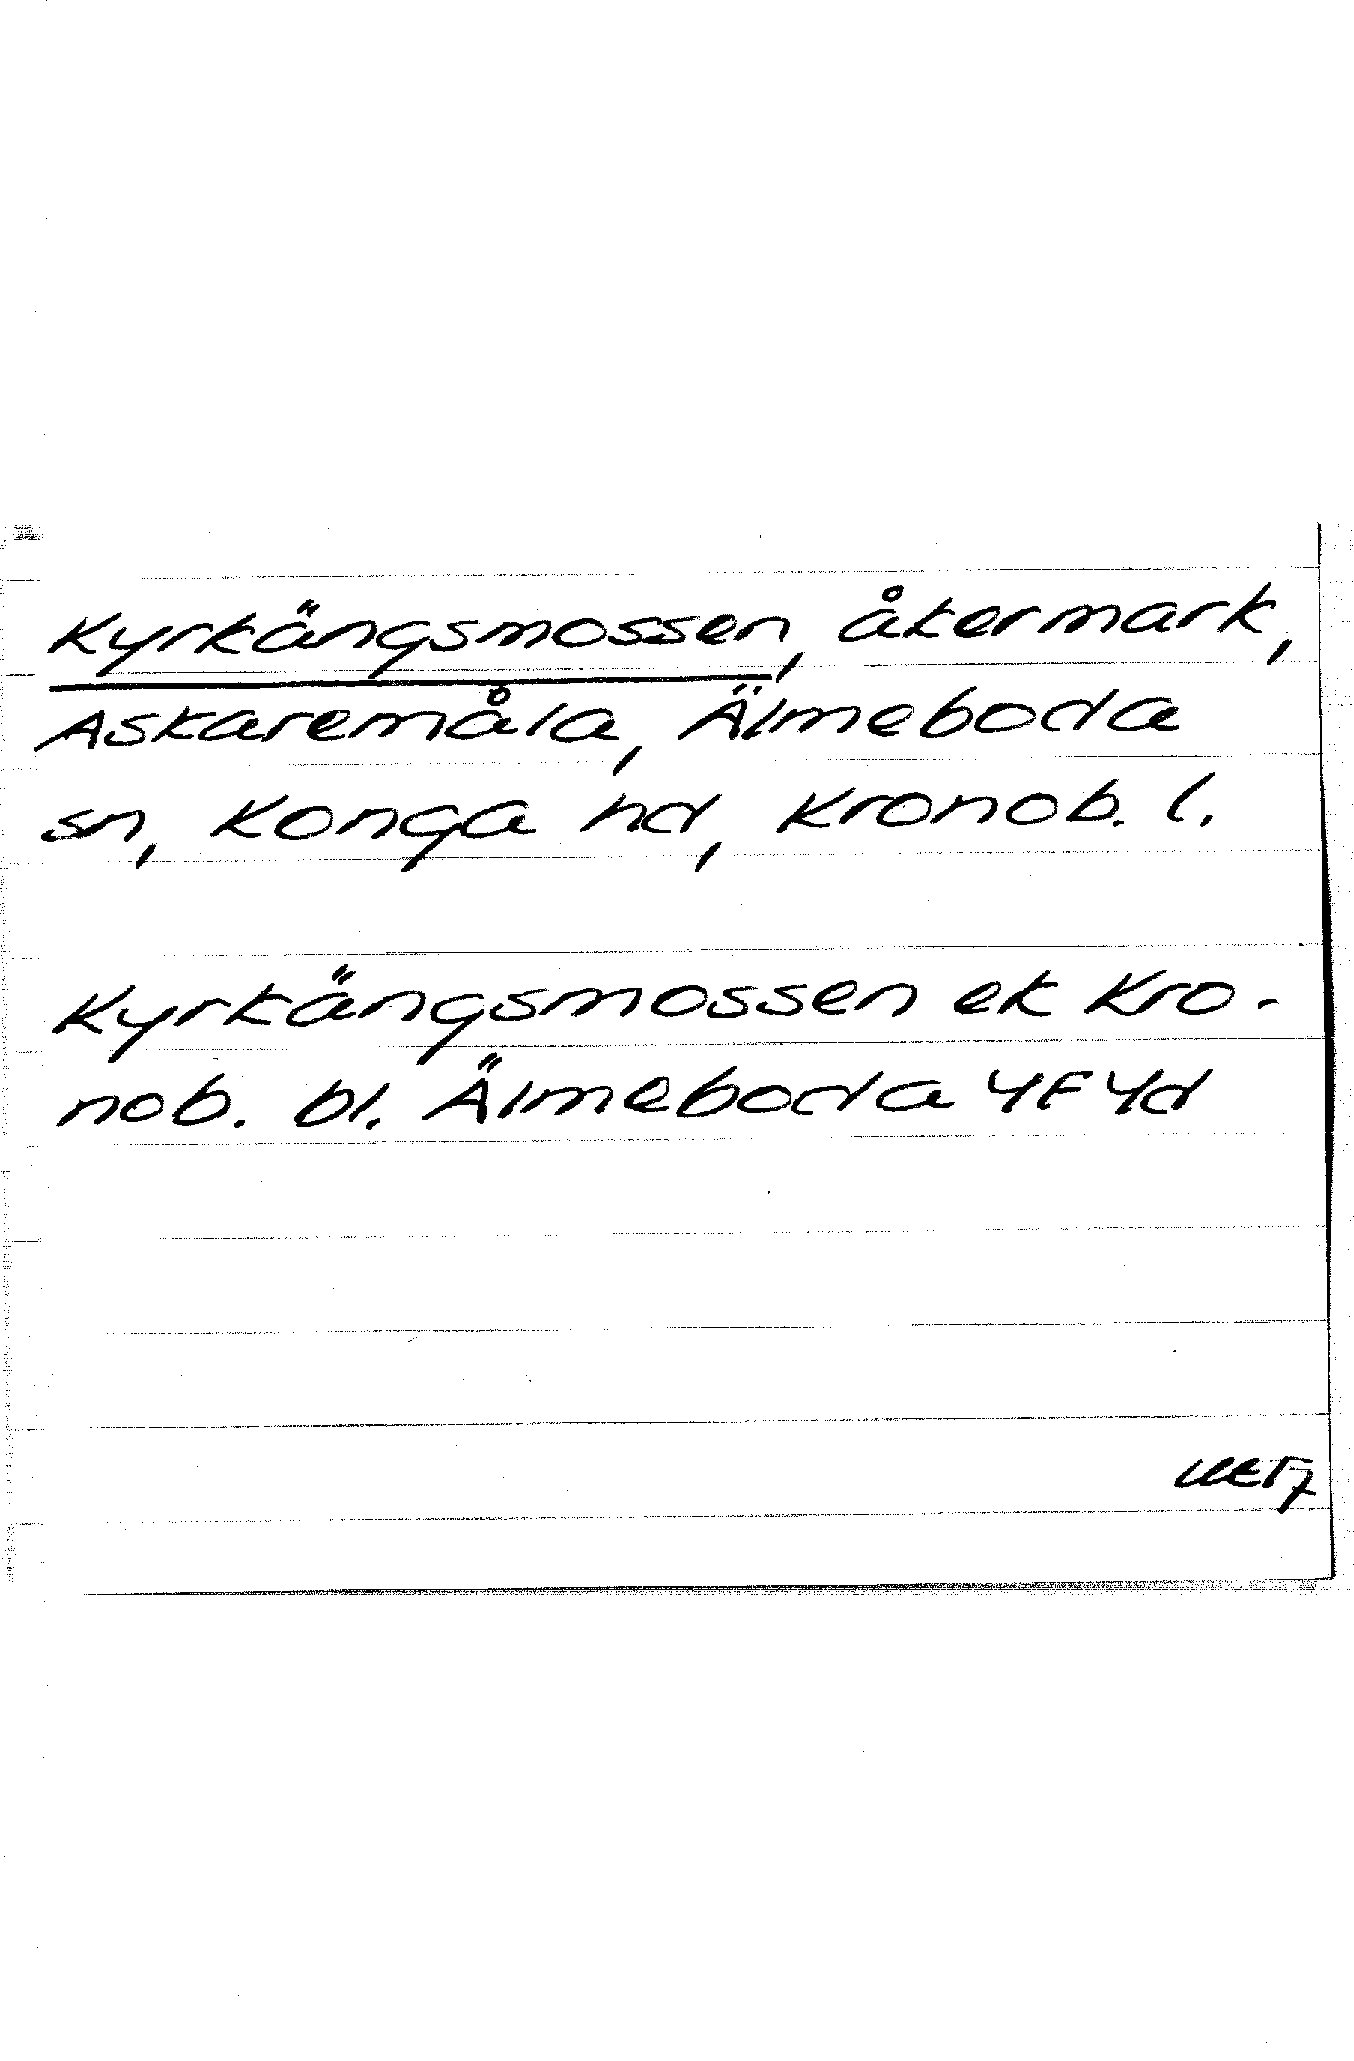 Kyrkängsmossen, åkermark,
Askaremåla, Älmeboda
sn, Konga hd, Kronob. l.
Kyrkängsmossen ek Kro-
nob. bl. Älmeboda 4F4d